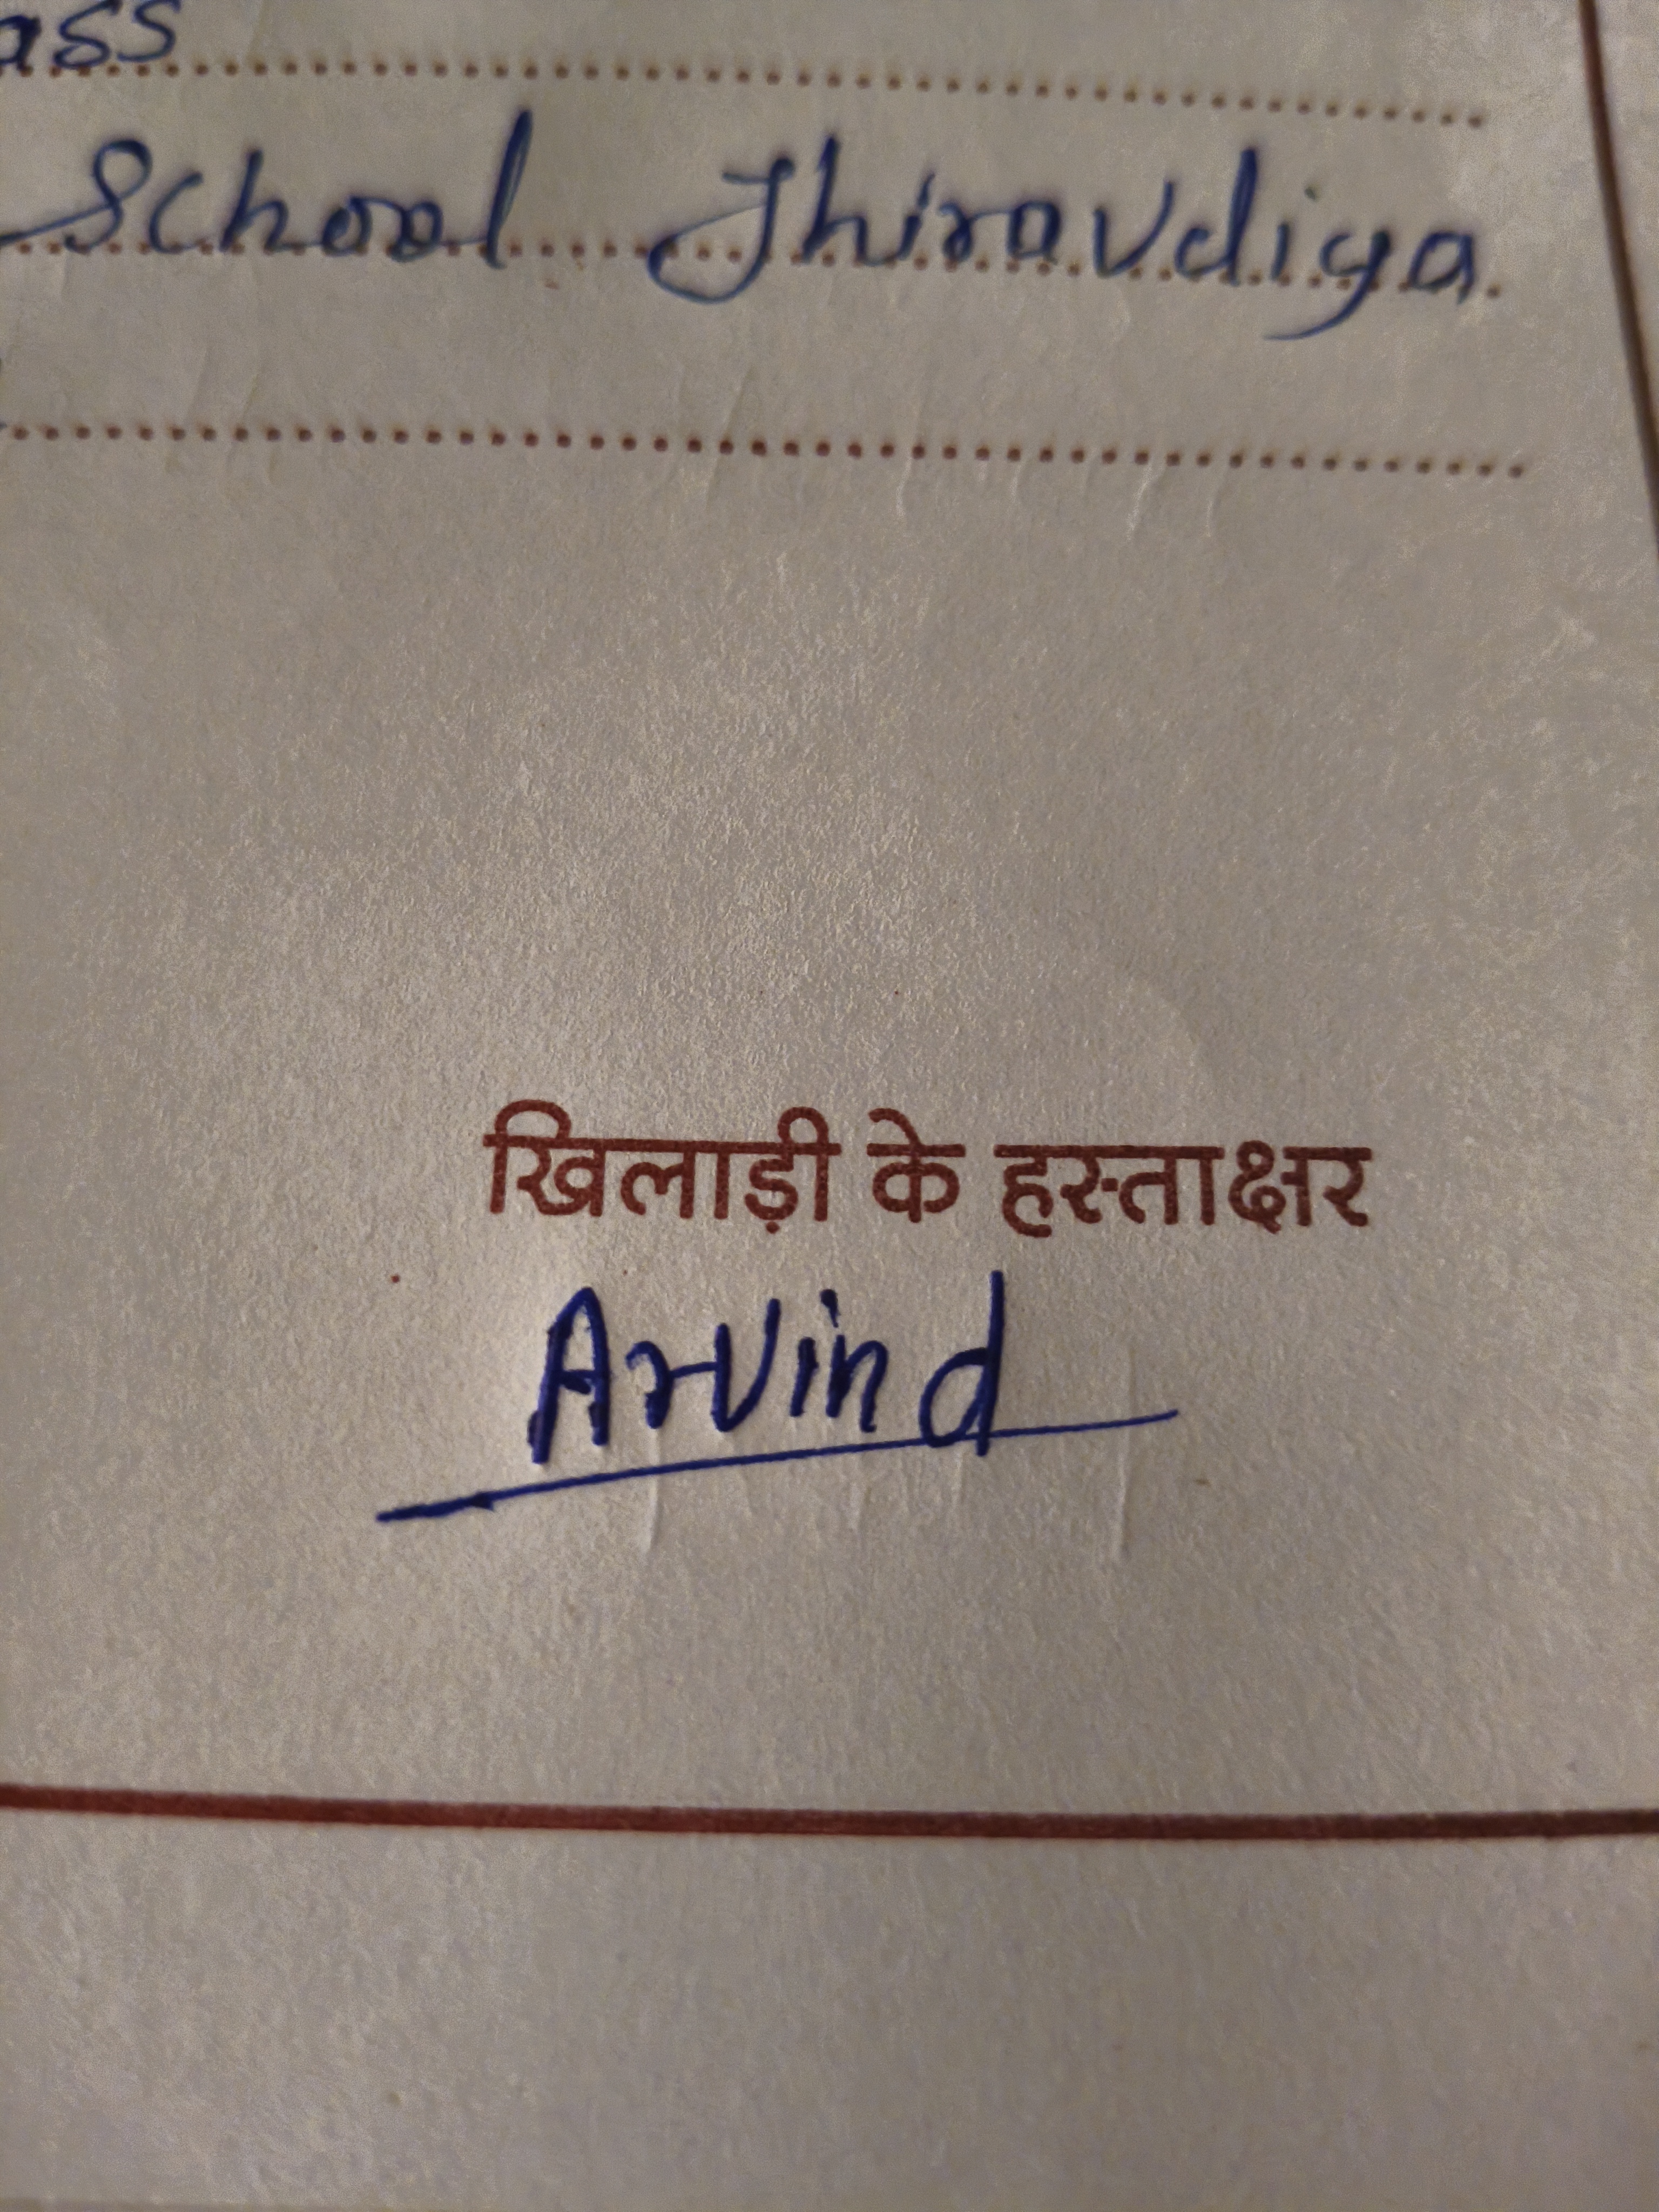 ass
School Jhiravdiya
खिलाड़ी के हस्ताक्षर
Arvind